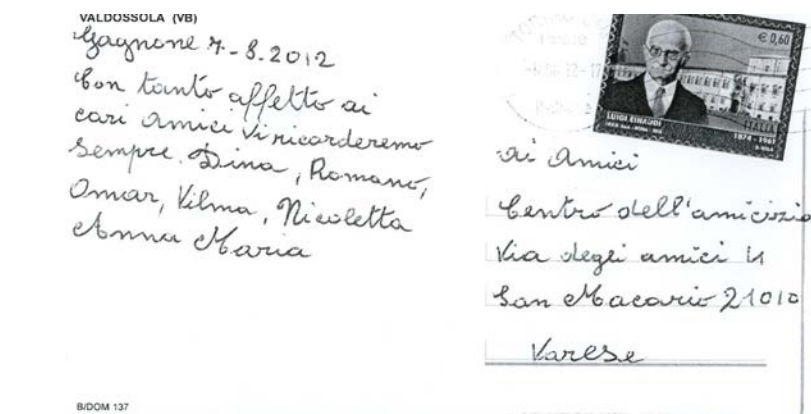 VALDOSSOLA (VB)
Gagnone 7-8.2012
Con tanto affetto ai
cari amici vi ricorderemo
sempre. Dina, Romano,
Omar, Vilma, Nicoletta
Anna Maria
B/DOM 137
€ 0,60
LUIGI EINAUDI
ITALIA
1874 - 1961
ai Amici
Centro dell'amicizia
Via degli amici 4
San Macario 21010
Varese